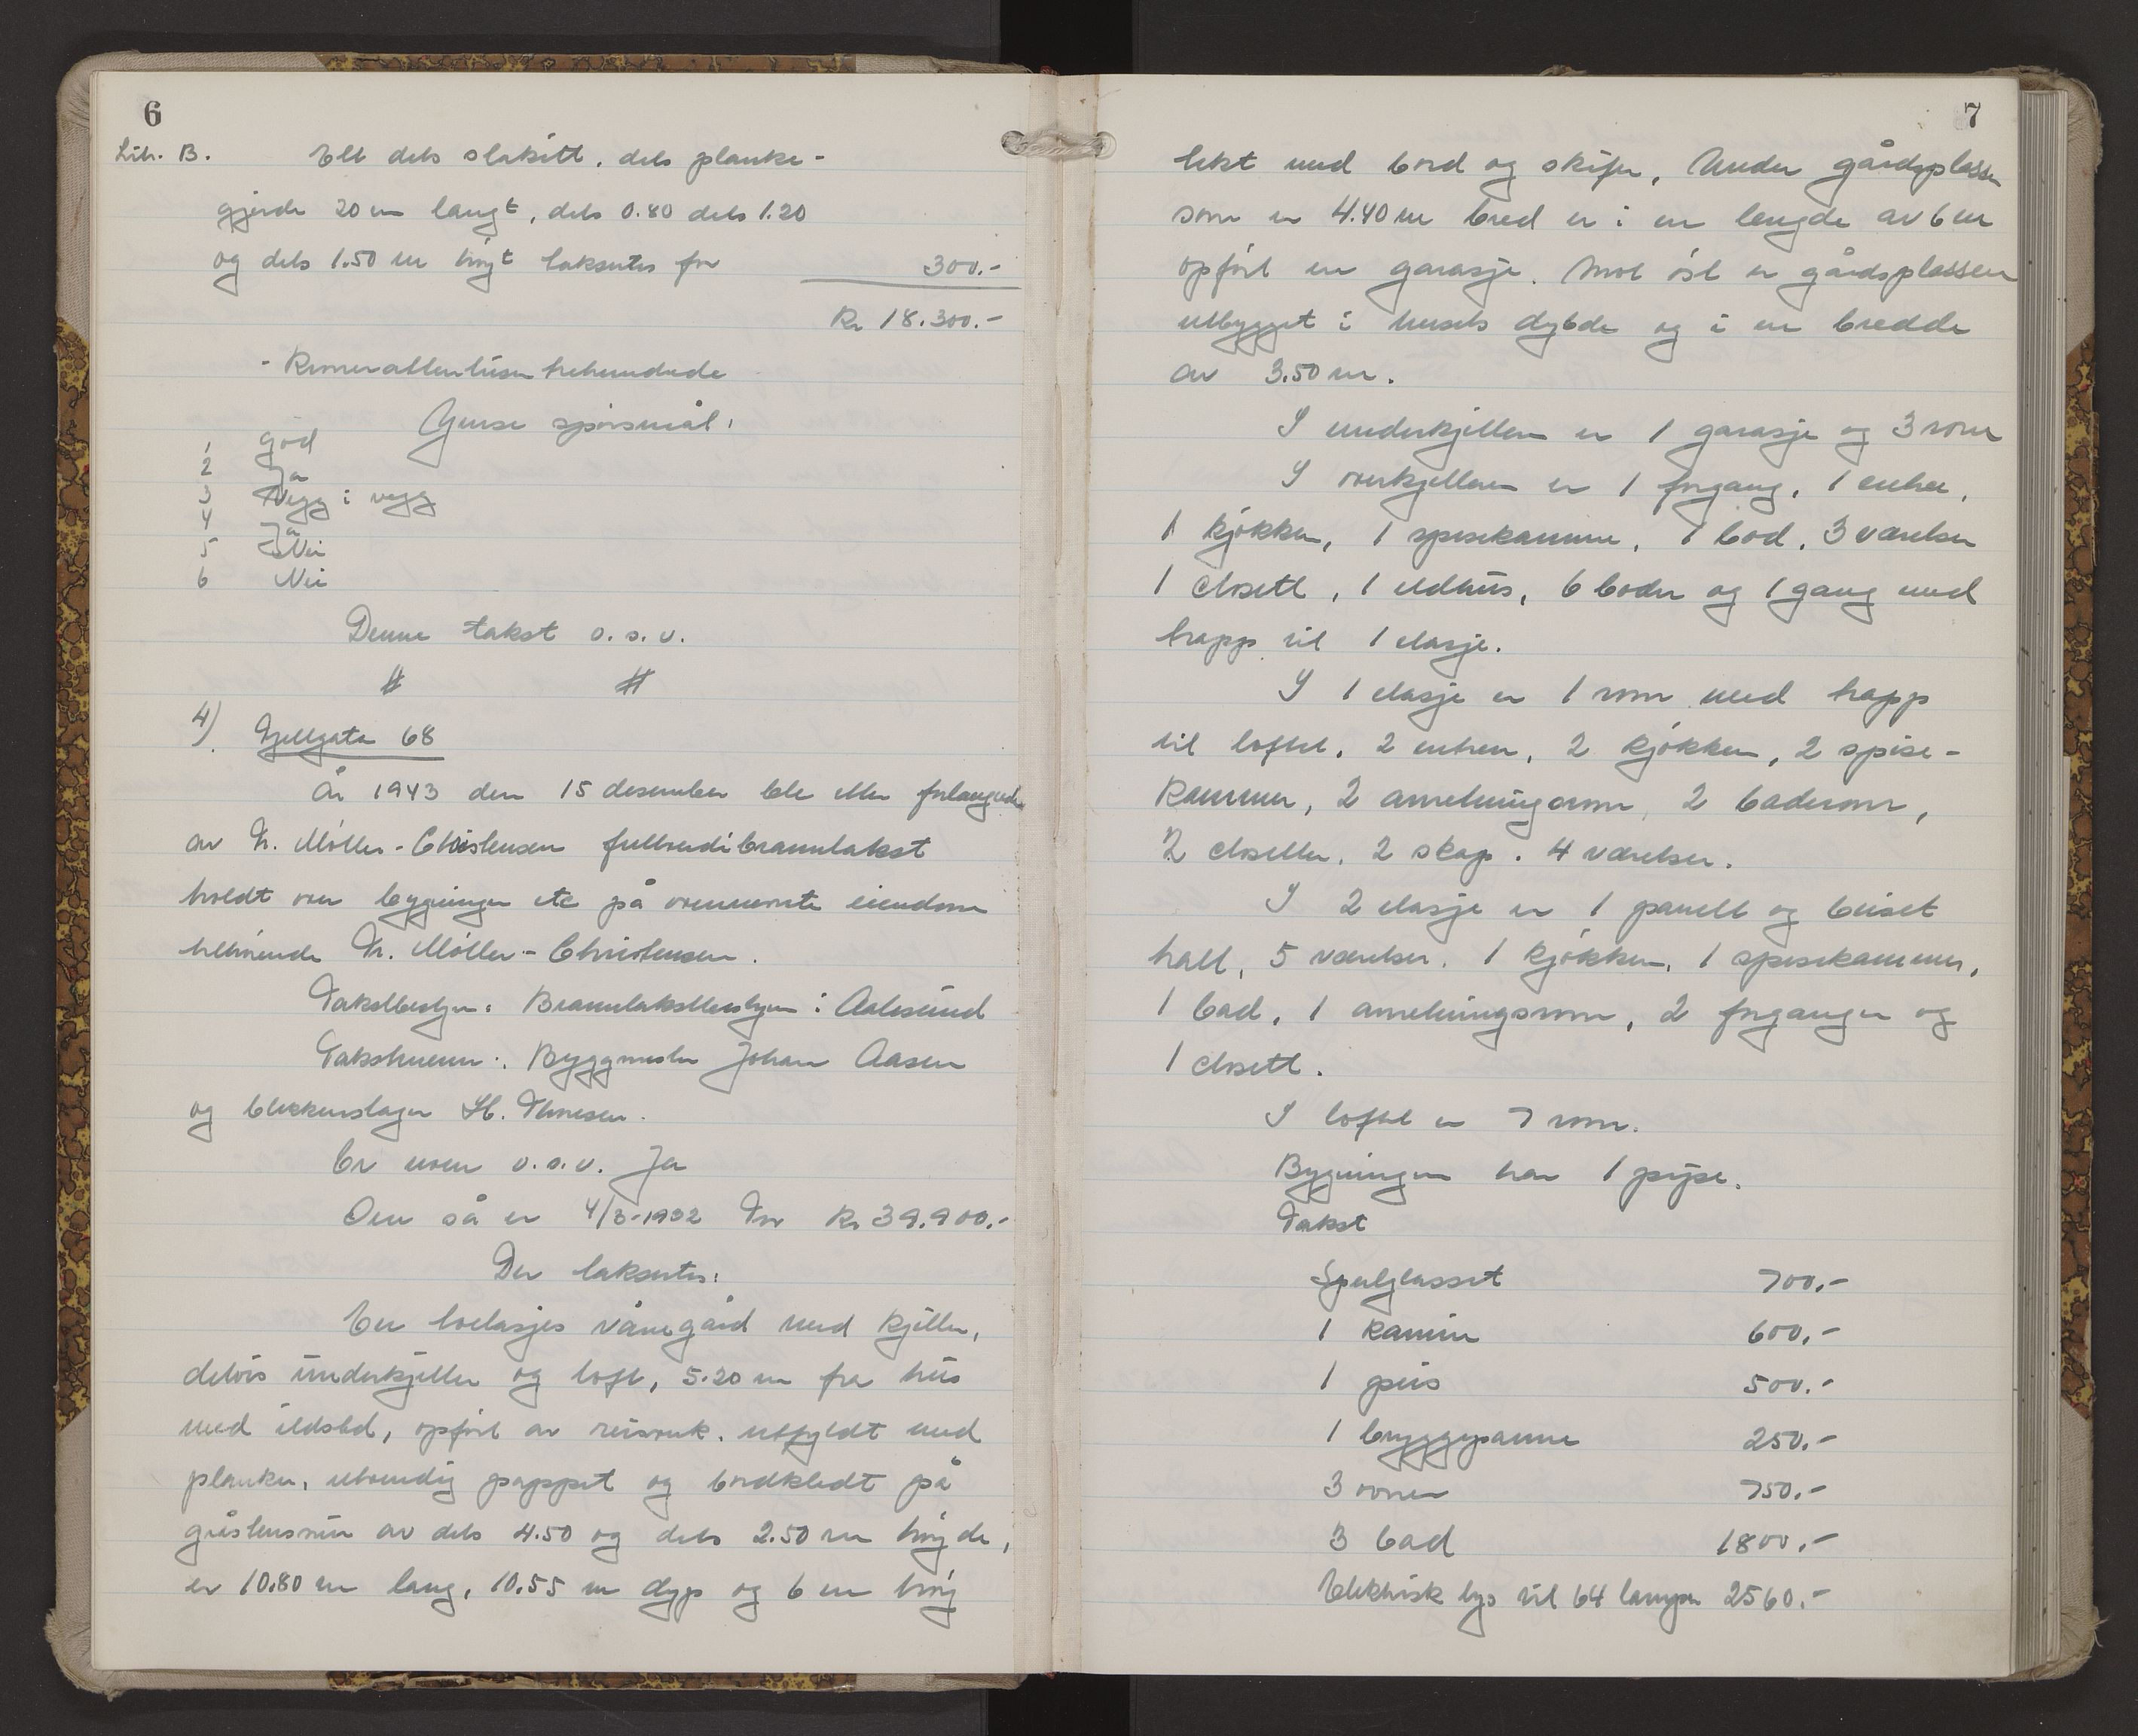 6
Litr. B. Ett dels stakitt, dels planke-
gjerde 20 m langt, dels 0.80 dels 1.20
og dels 1.50 m høyt takseres for 300.-
Kr 18.300.-
- Kroner attentusen trehundrede
Gjense spørsmål:
1 God
2 Ja
3 Vegg i vegg
4 Ja
5 Nei
6 Nei
Denne takst o.s.v.
# #
4) Fjellgata 68
År 1943 den 15 desember ble etter forlangende
av Fr. Møller-Christensen fullverdibranntakst
holdt over bygninger etc på ovennevnte eiendom
tilhørende Fr. Møller-Christensen.
Takstbestyrer: Branntakstbestyrer i Aalesund
Takstmenn: Byggmester Johan Aasen
og blikkenslager H. Thoresen.
Er noen o.s.v. Ja
Den så er 4/3-1932 for Kr 39.900.-
Der takseres:
En toetasjes våningård med kjeller,
delvis underkjeller og loft, 5.20 m fra hus
med ildsted, opført av reisverk, utfyldt med
planker, utvendig pappet og bordkledt på
gråstensmur av dels 4.50 og dels 2.50 m høyde,
er 10.80 m lang, 10.55 m dyp og 6 m høy
7
tekt med bord og skifer. Under gårdsplassen
som er 4.40 m bred er i en lengde av 6 m
opført en garasje. Mot øst er gårdsplassen
utbygget i husets dybde og i en bredde
av 3.50 m.
I underkjelleren er 1 garasje og 3 rom
I overkjelleren er 1 forgang, 1 entre,
1 kjøkken, 1 spisekammer, 1 bod, 3 værelser
1 closett, 1 eldhus, 6 boder og 1 gang med
trapp til 1 etasje.
I 1 etasje er 1 rom med trapp
til loftet, 2 entreer, 2 kjøkken, 2 spise-
kammer, 2 anretningsrom, 2 baderom,
2 closetter, 2 skap. 4 værelser.
I 2 etasje er 1 panelt og beiset
hall, 5 værelser, 1 kjøkken, 1 spisekammer,
1 bad, 1 anretningsrom, 2 forganger og
1 closett.
I loftet er 7 rom.
Bygningen har 1 pipe.
Takst
Speilglasset 700.-
1 kamin 600.-
1 peis 500.-
1 bryggepanne 250.-
3 ovner 750.-
3 bad 1800.-
Elektrisk lys til 64 lamper 2560.-